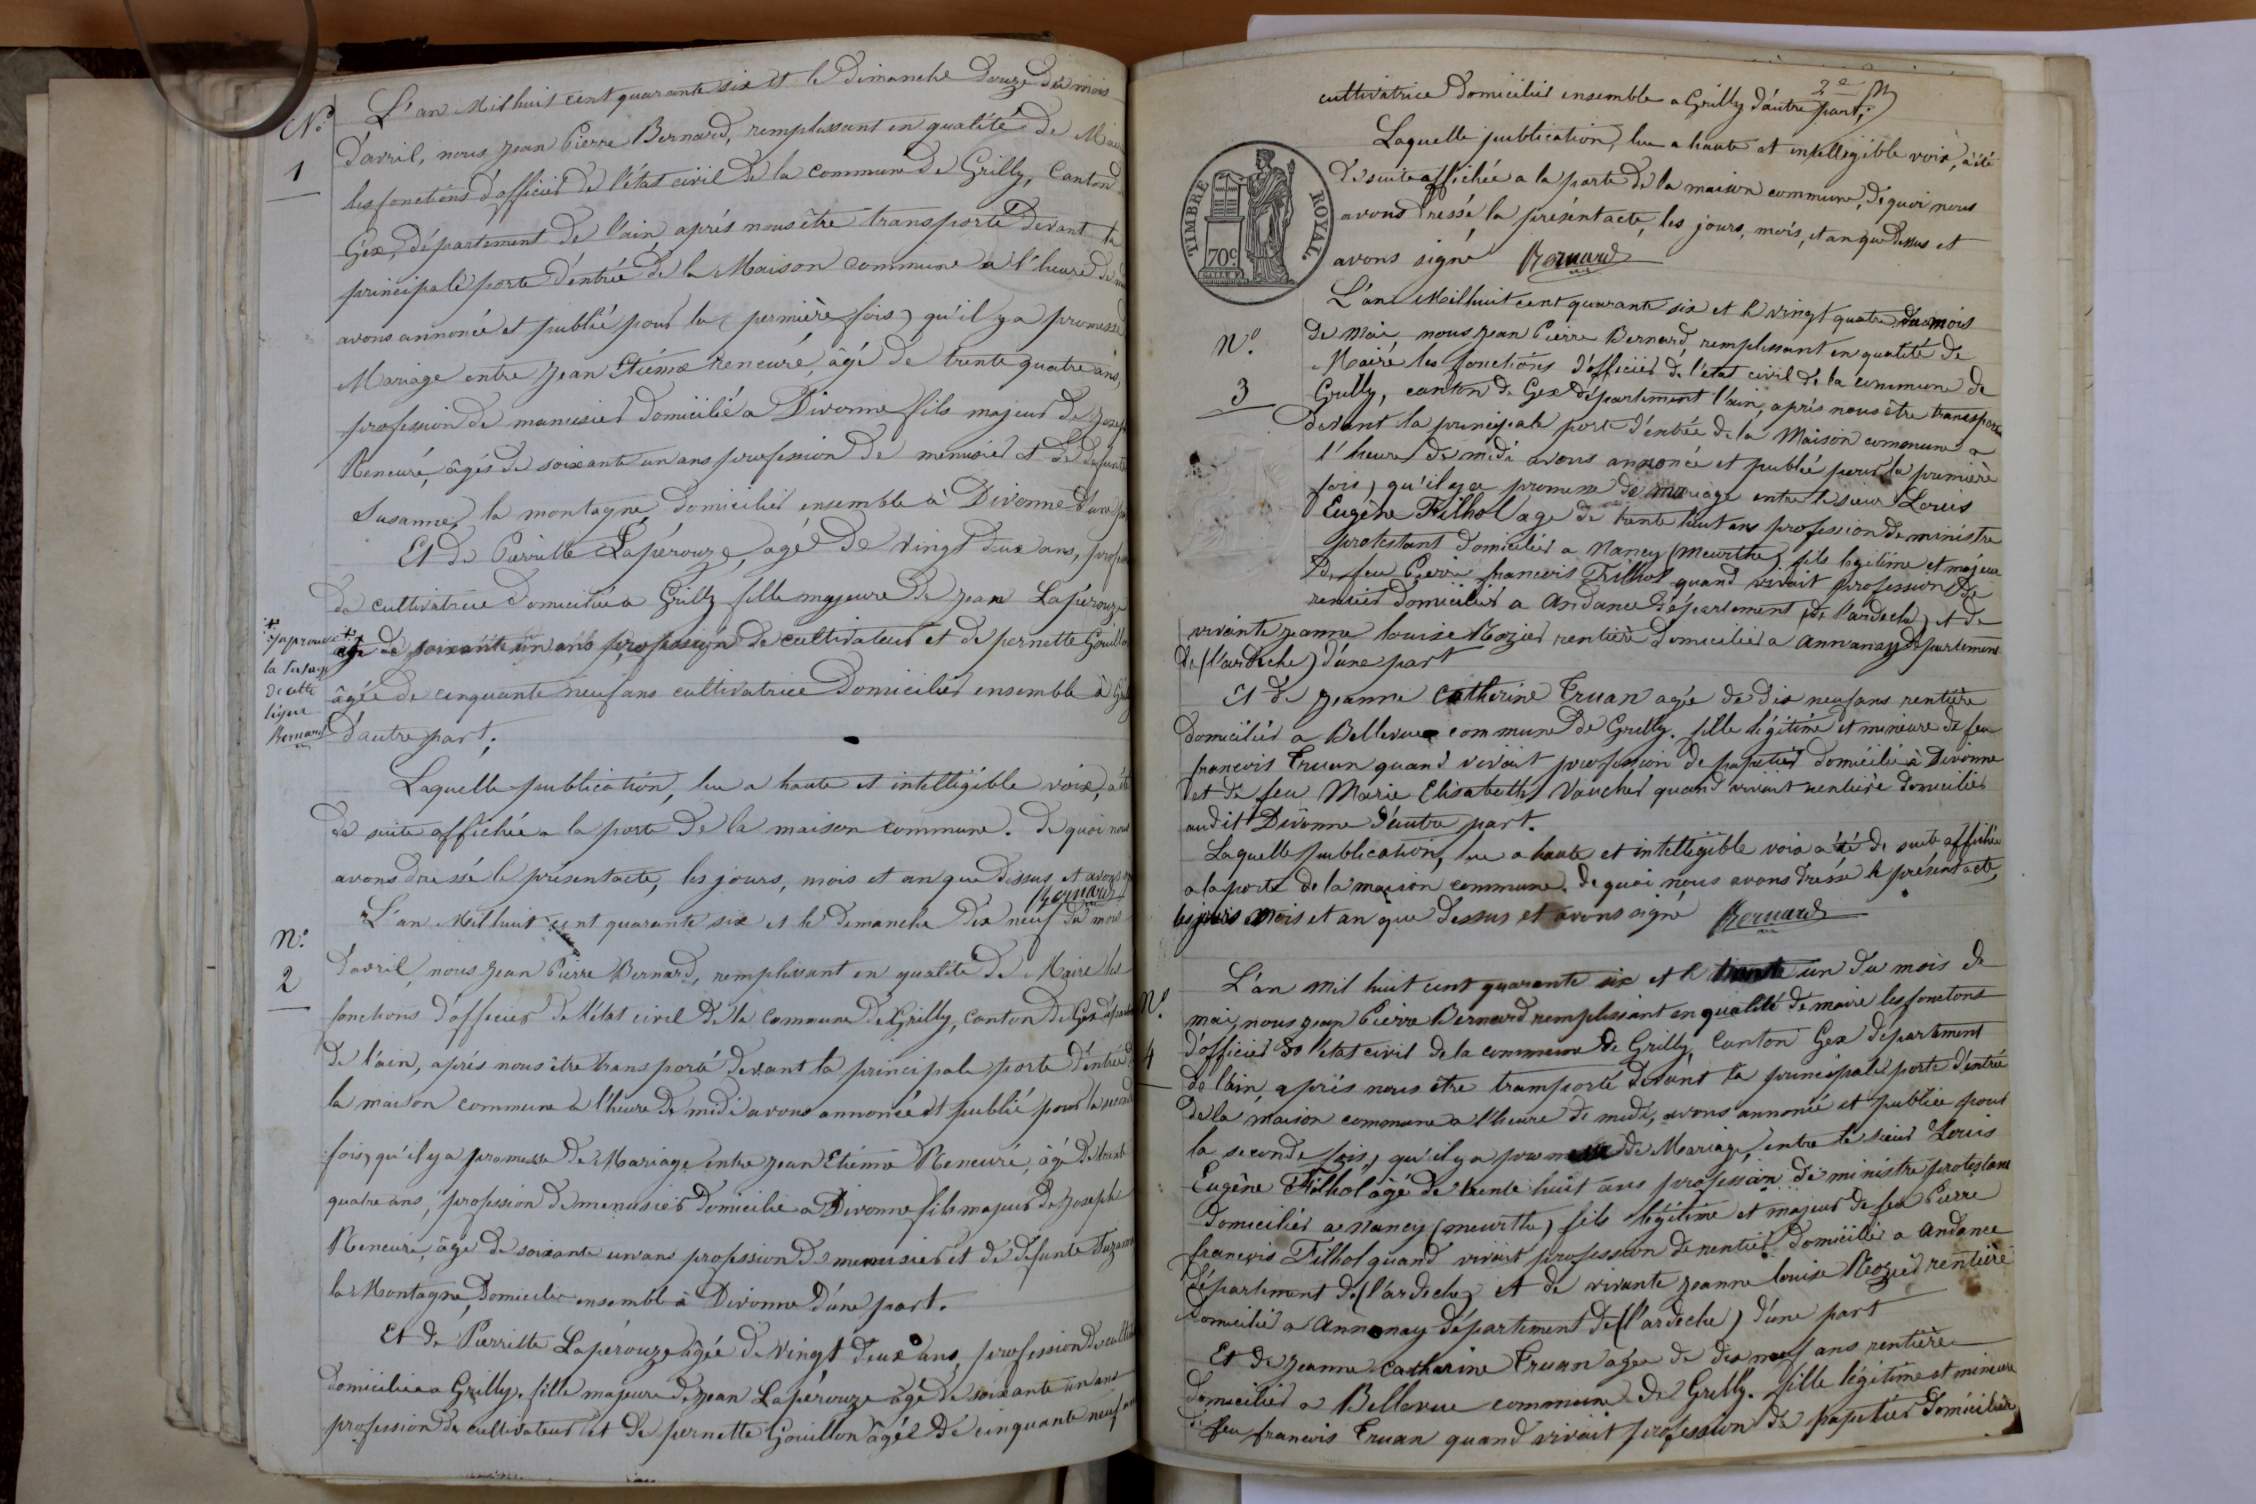 N.o
1
L'an Mil huit cent quarante six et le Dimanche Douze du mois
D'avril, nous Jean Pierre Bernard, remplissant en qualité de Mai
les fonctions d'officier de l'état civil de la commune de Grilly, Canton
Gex, département de l'ain après nous être transporté devant la
principale porte d'entrée de la Maison commune a l'heure de
avons annoncée et publié pour la (permière fois) qu'il y a promesse
Mariage entre Jean Etiénne Reneuré, âgé de trente quatre ans,
profession de menusier domicilié a Divonne fils majeur de Joseph
Reneuré, âgés de soixante un ans profession de menusier et de defunte
Susanne, la montagne, domiciliés ensemble à Divonne d'une
Et de Pierrille Lapérouze, agée de vingt deux ans, prof
de cultivatrice domiciliée a Grilly fille majeure de Jean Lapérouze
agé de soixante un ans profession de cultivateur et de pernette Gouillo
âgée de cinquante neuf ans cultivatrice domiciliés ensemble à G
d'autre part;
la
de cette
ligne
Bernard
Laquelle publication, lue a haute et intelligible voix, a
de suite affichée a la porte de la maison commune. de quoi nous
avons dressé le présent acte, les jours, mois et an que dessus et avons
Bernard
N.o
2
L'an Mil huit cent quarante six et le dimanche dix neuf du mois
d'avril, nous Jean Pierre Bernard, remplissant en qualité de Maire les
fonctions d'officier de l'état civil de la commune de Grilly, canton de Gex
de l'ain, après nous être transporté devant la principale porte d'entrée
la maison commune a l'heure de midi avons annoncé et publié pour la second
fois, qu'il y a promesse de Mariage entre Jean Etienne Reneuré, âgé de trente
quatre ans, profession de menusier domicilie a Divonne fils majeur de Joseph
Reneuré, âgé de soixante un ans profession de menusier et de defunte Suzanne
la Montagne, Domicilier ensemble à Divonne d'une part.
Et de Pierrille Lapérouze âgée de vingt deux ans, profession de cultiv
domiciliée a Grilly. fille majeure de Jean Lapérouze âgé de soixante un ans
profession de cultivateur et de pernette Gouillon âgée de cinquante neuf
2e
cultivatrice domiciliés ensemble a Grilly d'autre part;
Laquelle publication, lue a haute et intelligible voix, a été
de suite affichée a la porte de la maison commune, de quoi nous
avons dressé, la présent acte, les jours, mois, et an que dessus et
avons signé Bernard
TIMBRE ROYAL
70c.
N.o
3
L'an Mil huit cent quarante six et le vingt quatre du mois
de Mai nous Jean Pierre Bernard, remplissant en qualité de
Maire les fonctions d'officier de l'état civil de la commune de
Grilly, canton de Gex département l'ain, après nous être transporté
devant la principale porte d'entrée de la Maison commune a
l'heure de midi avons annoncée et publiée pour la première
fois, qu'il y a promesse de mariage entre le sieur Louis
Eugène Filhol age de trente huit ans profession de ministre
protestant domicilier a Nancy (Meurthe) fils légitime et majeur
de feu Pierre francois Filhol quand vivait profession de
rentier domicilier a Andance département (de l'ardeche) et de
vivante Jeanne louise Rozier rentière domicilier a Annonay département
de (l'ardeche) d'une part
Et de Jeanne Catherine Truan agée de dix neuf ans rentière
domicilier a Bellevue commune de Grilly. fille légitime et mineure de feu
francois Truan quand vivait profession de papetier domicilié à Divonne
et de feu Marie Elisabeth Vaucher quand vivait rentière domicilier
audit Divonne d'autre part.
Laquelle publication, lue a haute et intelligible voix a été de suite affichée
a la porte de la maison commune. de quoi nous avons dréssé le présent acte,
les jours mois et an que dessus et avons signé Bernard
N.o
4
L'an mil huit cent quarante six et le trente un du mois de
mai, nous Jean Pierre Bernard remplissant en qualité de maire les fonctons
d'officier de l'état civil de la commune de Grilly, Canton Gex département
de l'ain, après nous être transporté devant la principale porte d'entrée
de la maison commune a l'heure de midi, avons annoncé et publiée pour
la seconde fois, qu'il y a promesse de Mariage, entre le sieur Louis
Eugène Filhol âgé de trente huit ans profession de ministre protestant
domicilier a Nancy (meurthe) fils légitime et majeur de feu Pierre
francois Filhol quand vivait profession de rentier domicilier a Andance
département de (l'ardeche) et de vivante Jeanne louise Rozier rentière
domicilié a Annonay département de (l'ardeche) d'une part
Et de Jeanne Catherine Truan agée de dix neuf ans rentière
domicilier a Bellevue commune de Grilly. fille légitime et mineure
de feu francois Truan quand vivait profession de papetier domicilier